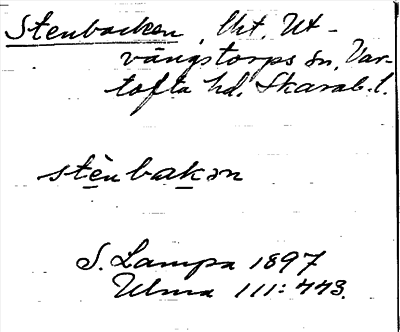 Stenbacken, Lht. Ut-
vängstorps sn, Var-
tofta hd. Skarab. l.
stènbakən
S. Lampa 1897
Ulma 111:443.